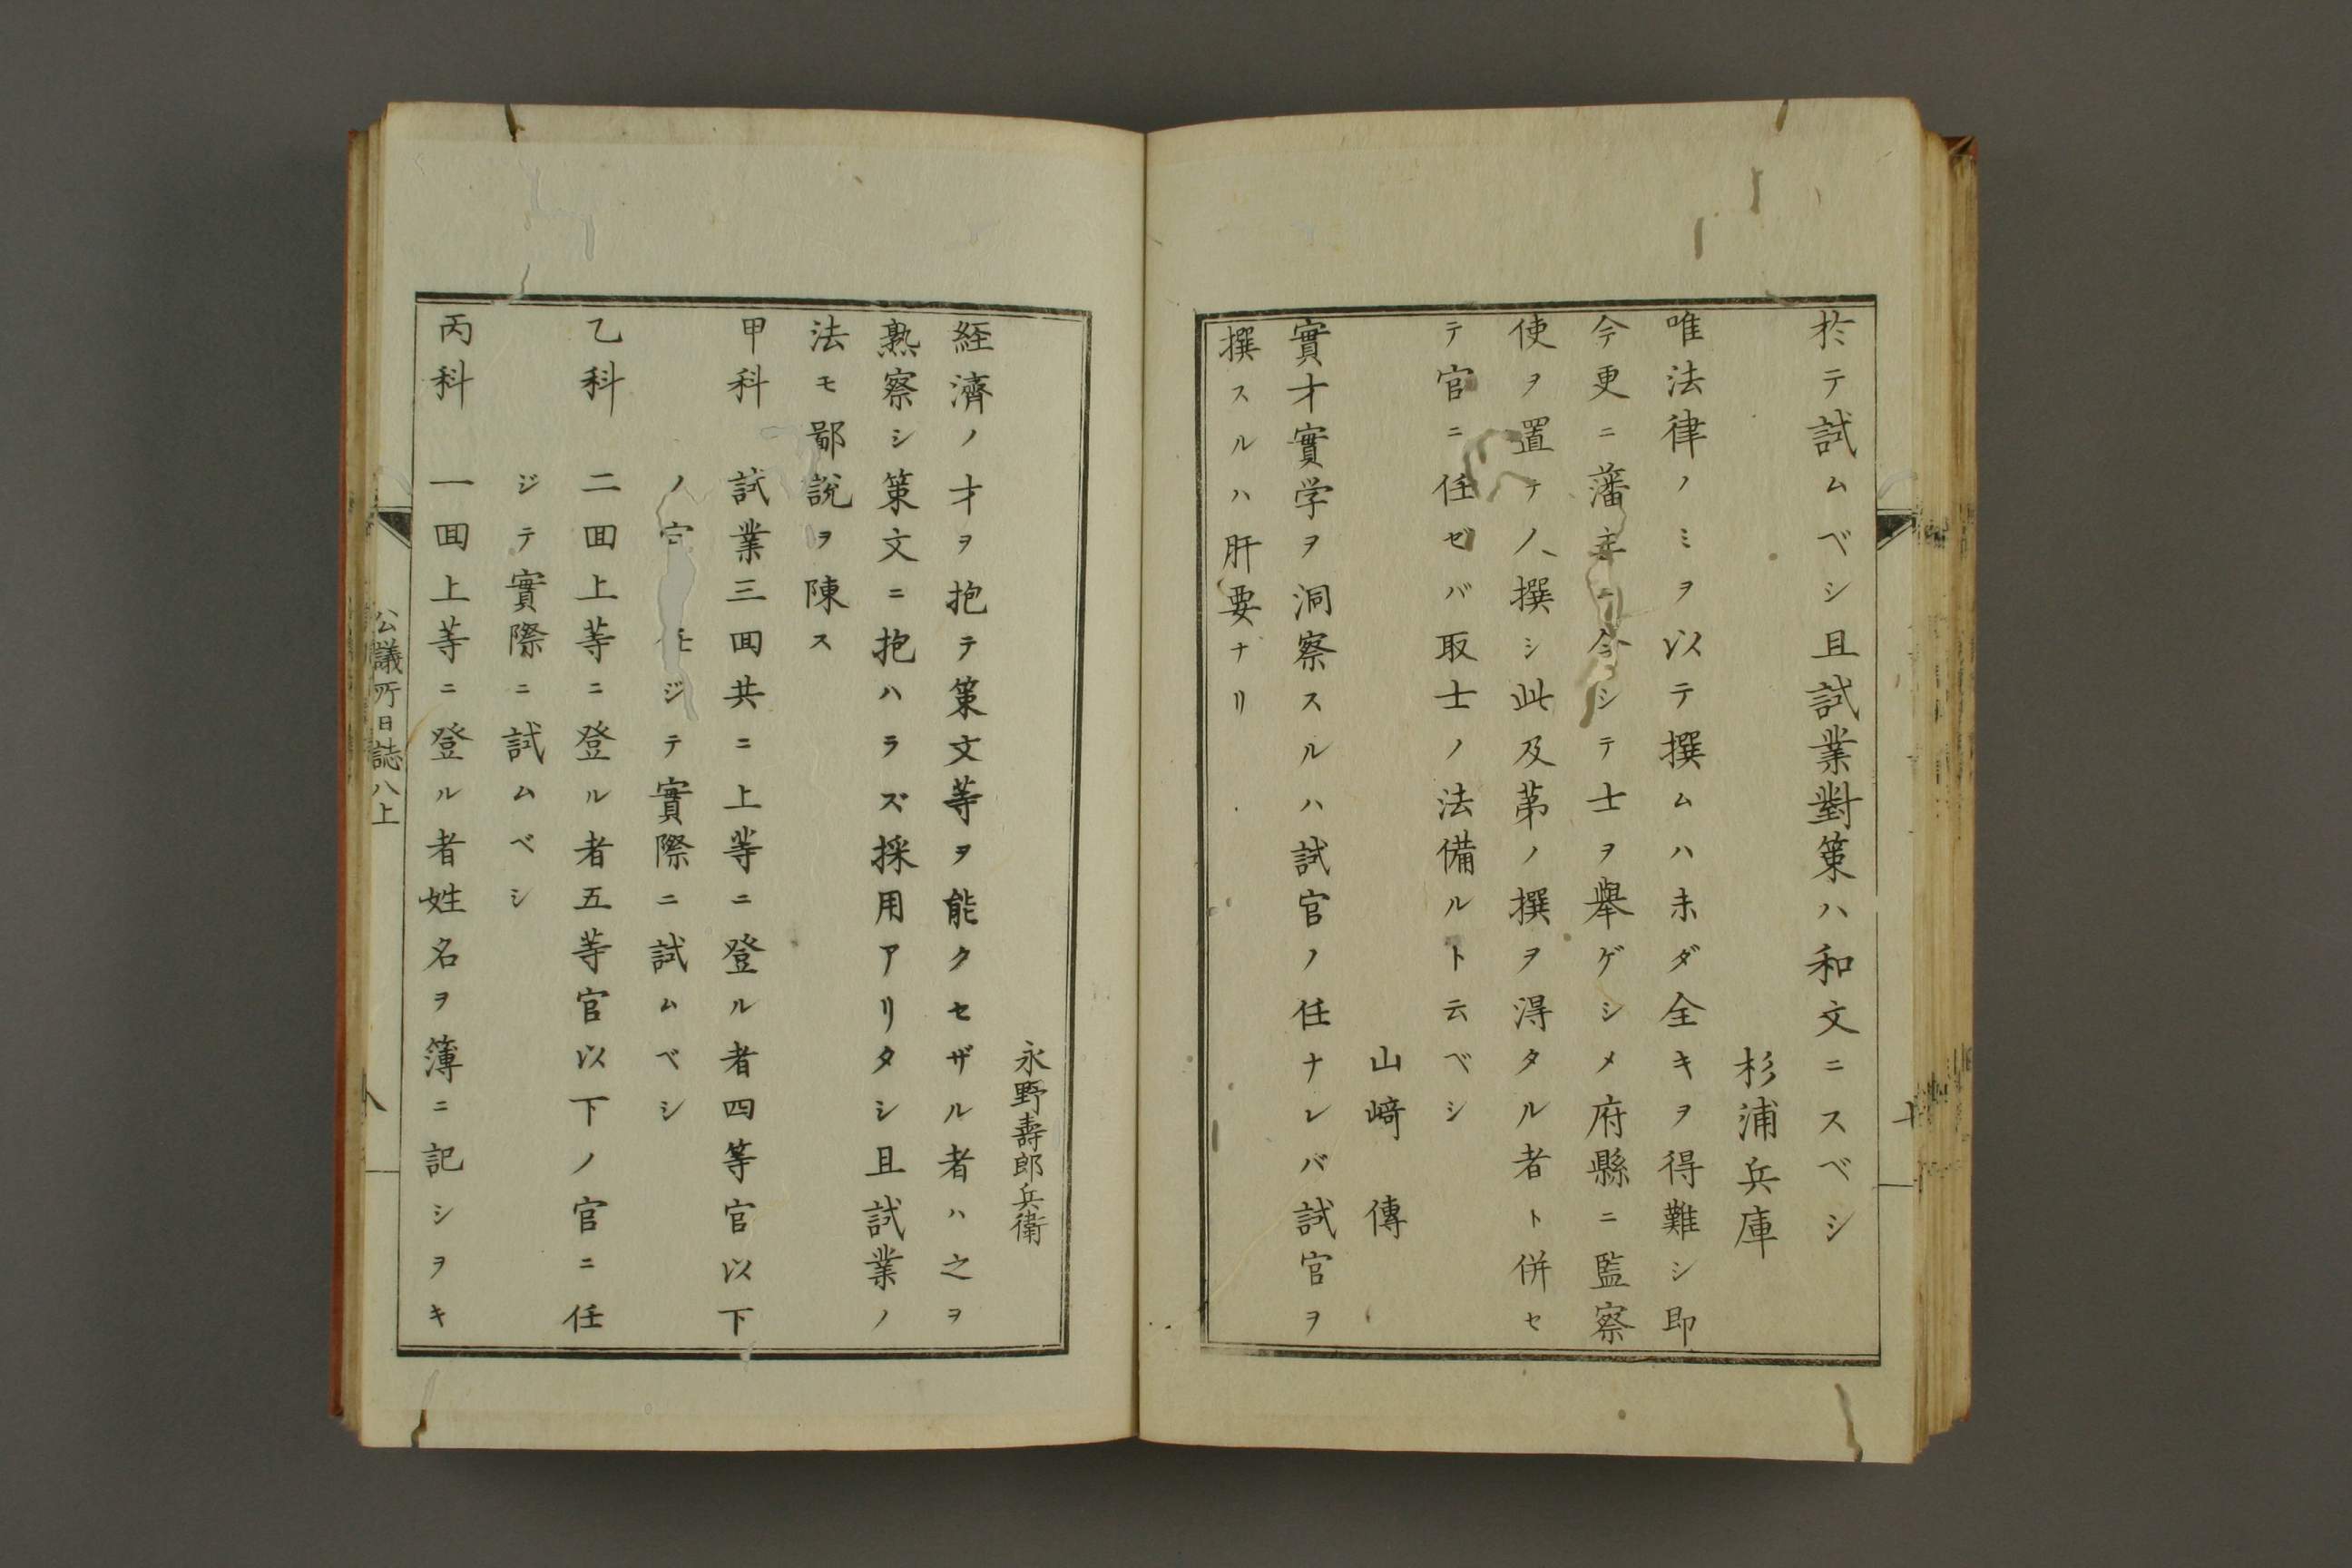 於テ試ムベシ且試業對策ハ和文ニスベシ
杉浦兵庫
唯法律ノミヲ以テ撰ムハ未ダ全キヲ得難シ即
今更ニ藩主ニ令シテ士ヲ舉ゲシメ府縣ニ監察
使ヲ置テ人撰シ此及第ノ撰ヲ得タル者ト併セ
テ官ニ任ゼバ取士ノ法備ルト云ベシ
山﨑傳
實才實学ヲ洞察スルハ試官ノ任ナレバ試官ヲ
撰スルハ肝要ナリ
永野壽郎兵衛
経濟ノ才ヲ抱テ策文等ヲ能クセザル者ハ之ヲ
熟察シ策文ニ抱ハラズ採用アリタシ且試業ノ
法モ鄙説ヲ陳ス
甲科 試業三囬共ニ上等ニ登ル者四等官以下
ノ官 任ジテ實際ニ試ムベシ
乙科 二囬上等ニ登ル者五等官以下ノ官ニ任
ジテ實際ニ試ムベシ
丙科 一囬上等ニ登ル者姓名ヲ簿ニ記シヲキ
公議所日誌八上